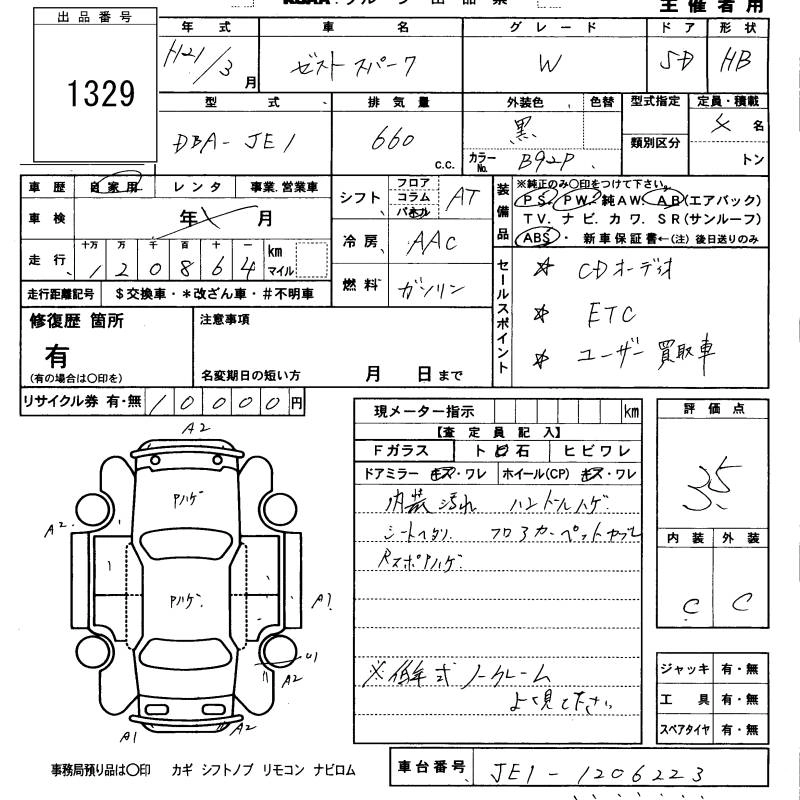 主催者用
出品番号
1329
年式 車名 グレード ドア 形状
H21/3月 ゼストスパーク W 5D HB
型式 排気量 外装色 色替 型式指定 定員・積載
類別区分
DBA-JE1 660 c.c. 黒 カラーNo. B92P 4名
トン
車歴 自家用 レンタ 事業.営業車
車検 年 月
走行 十万 万 千 百 十 一
120864 km マイル
走行距離記号 $交換車・*改ざん車・#不明車
シフト フロア コラム パネル AT
冷房 AAC
燃料 ガソリン
装備品 ※純正のみ○印をつけて下さい。
PS. PW. 純AW. AB(エアバック)
TV. ナビ. カワ. SR(サンルーフ)
ABS・ 新車保証書←(注)後日送りのみ
セールスポイント
☆ CDオーディオ
☆ ETC
☆ ユーザー買取車
修復歴 箇所
有
(有の場合は○印を)
注意事項
名変期日の短い方 月 日まで
リサイクル券 有・無 10000円
現メーター指示 km
【査定員記入】
Fガラス ト ビ 石 ヒビワレ
ドアミラー キズ・ワレ ホイール(CP) キズ・ワレ
内装汚れ ハンドルハゲ
シートヘタリ フロアカーペットヤブレ
RスポPハゲ
※低年式ノークレーム
よく見て下さい
評価点
3.5
内装 外装
C C
ジャッキ 有・無
工具 有・無
スペアタイヤ 有・無
A2
Pハゲ
A2
Pハゲ
A1
U1
A2
A1
A2
事務局預り品は○印 カギ シフトノブ リモコン ナビロム
車台番号 JE1-1206223